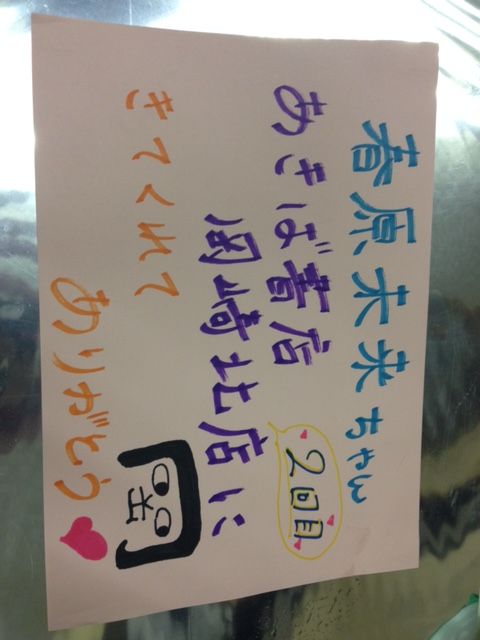 春原未来ちゃん
2回目
あきば書店
岡崎北店に
きてくれて
ありがとう